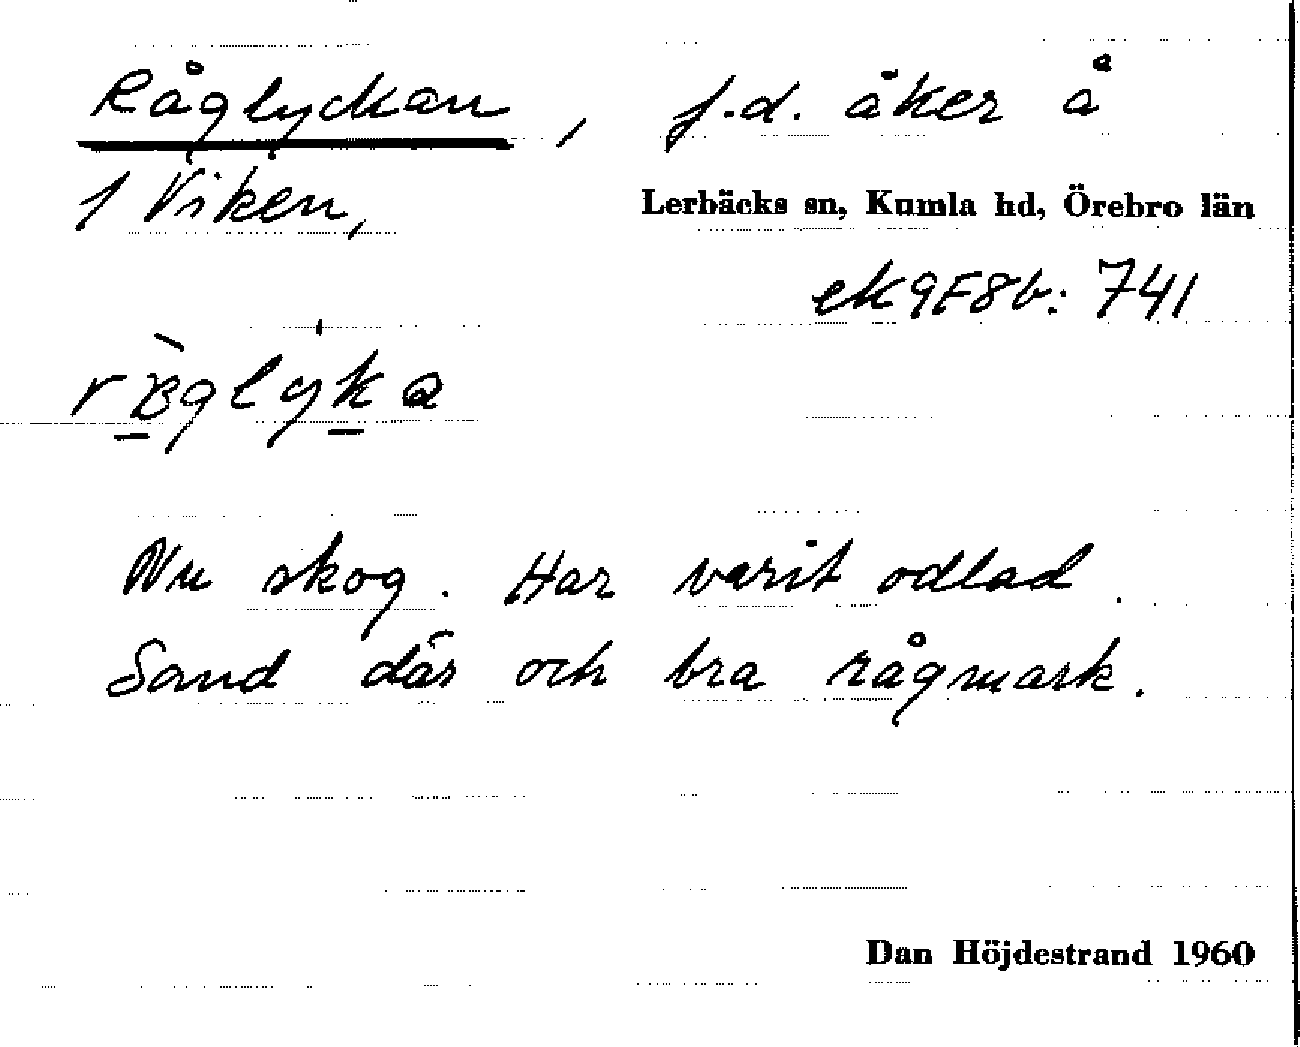 Råglyckan, f.d. åker å
1 Viken, Lerbäcks sn, Kumla hd, Örebro län
ek 9F8b: 741
Nu skog. Har varit odlad.
Sand där och bra rågmark.
Dan Höjdestrand 1960